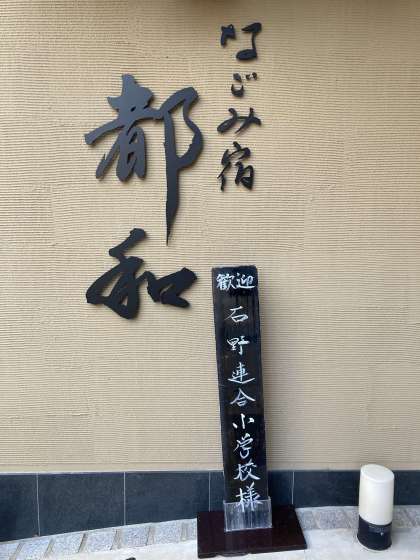 なごみ宿
都和
歓迎
石野連合小学校様